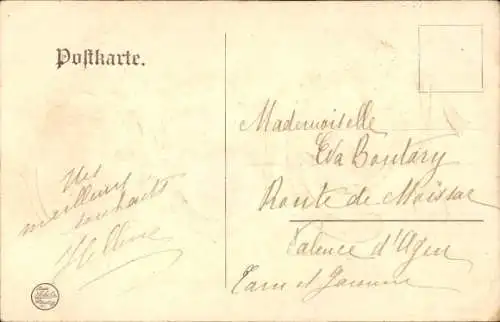 Postkarte.
Mademoiselle
Eva Boutary
Route de Moissac
Valence d'Agen
Tarn et Garonne
Mes
meilleurs
souhaits